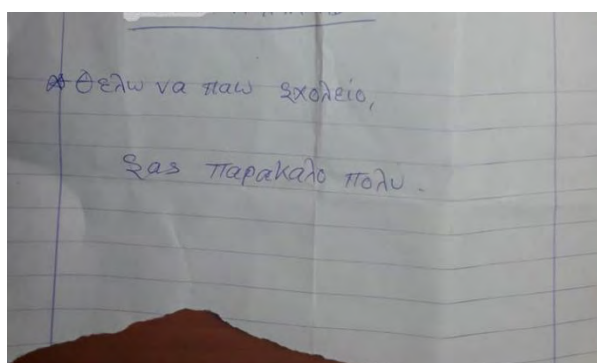 θελω να παω ξχολείο,
ξας παρακαλο πολυ.